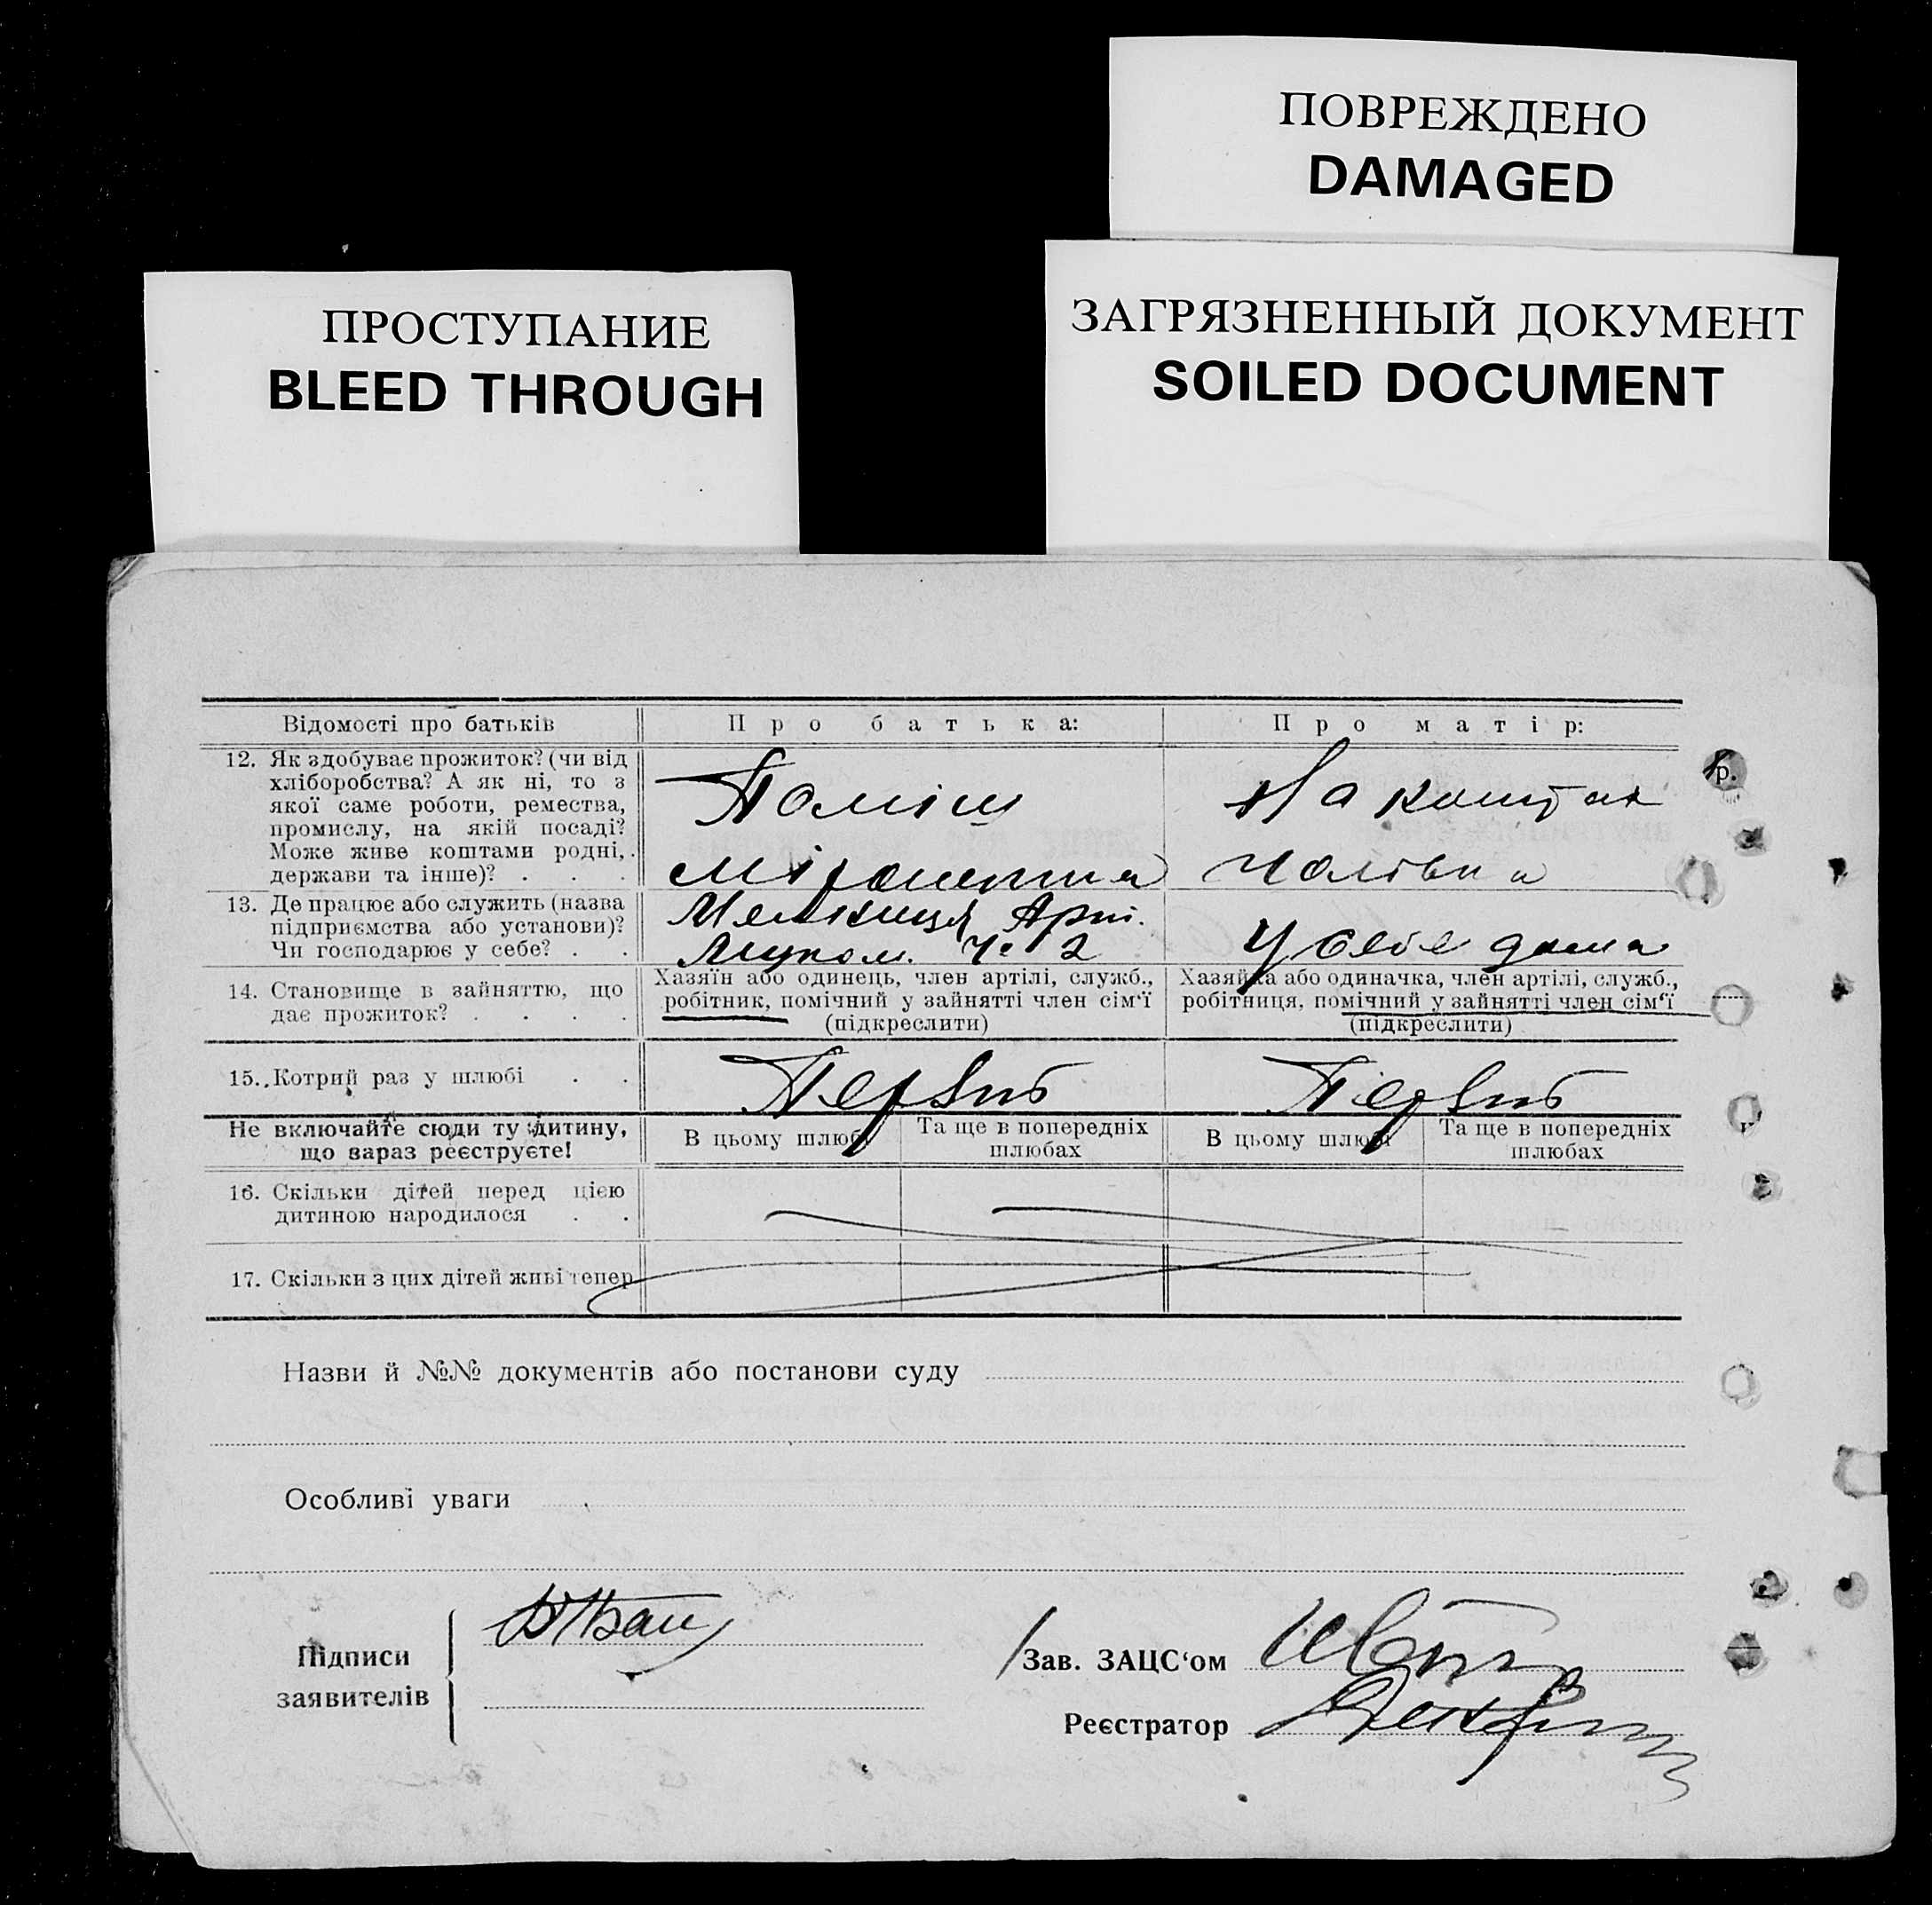 ПОВРЕЖДЕНО
DAMAGED
ПРОСТУПАНИЕ
BLEED THROUGH
ЗАГРЯЗНЕННЫЙ ДОКУМЕНТ
SOILED DOCUMENT
Відомості про батьків
Про батька:
Про матір:
12. Як здобуває прожиток? (чи від
хліборобства? А як ні, то з
якої саме роботи, ремества,
промислу, на якій посаді?
Може живе коштами родні,
держави та інше)? . . .
Поміш
мірошника
На коштах
чоловіка
р.
13. Де працює або служить (назва
підприємства або установи)?
Чи господарює у себе? . .
Мельниця Арт.
Ч. 2
У себе дома
14. Становище в зайняттю, що
дає прожиток? . . . .
Хазяїн або одинець, член артілі, служб.,
робітник, помічний у зайнятті член сім'ї
(підкреслити)
Хазяйка або одиначка, член артілі, служб.,
робітниця, помічний у зайнятті член сім'ї
(підкреслити)
15. Котрий раз у шлюбі . .
Первий
Первий
Не включайте сюди ту дитину,
що зараз реєструєте!
В цьому шлюбі
Та ще в попередніх
шлюбах
В цьому шлюбі
Та ще в попередніх
шлюбах
16. Скільки дітей перед цією
дитиною народилося . .
17. Скільки з цих дітей живі тепер
Назви й №№ документів або постанови суду
Особливі уваги
Підписи
заявителів
Зав. ЗАЦС'ом
Реєстратор